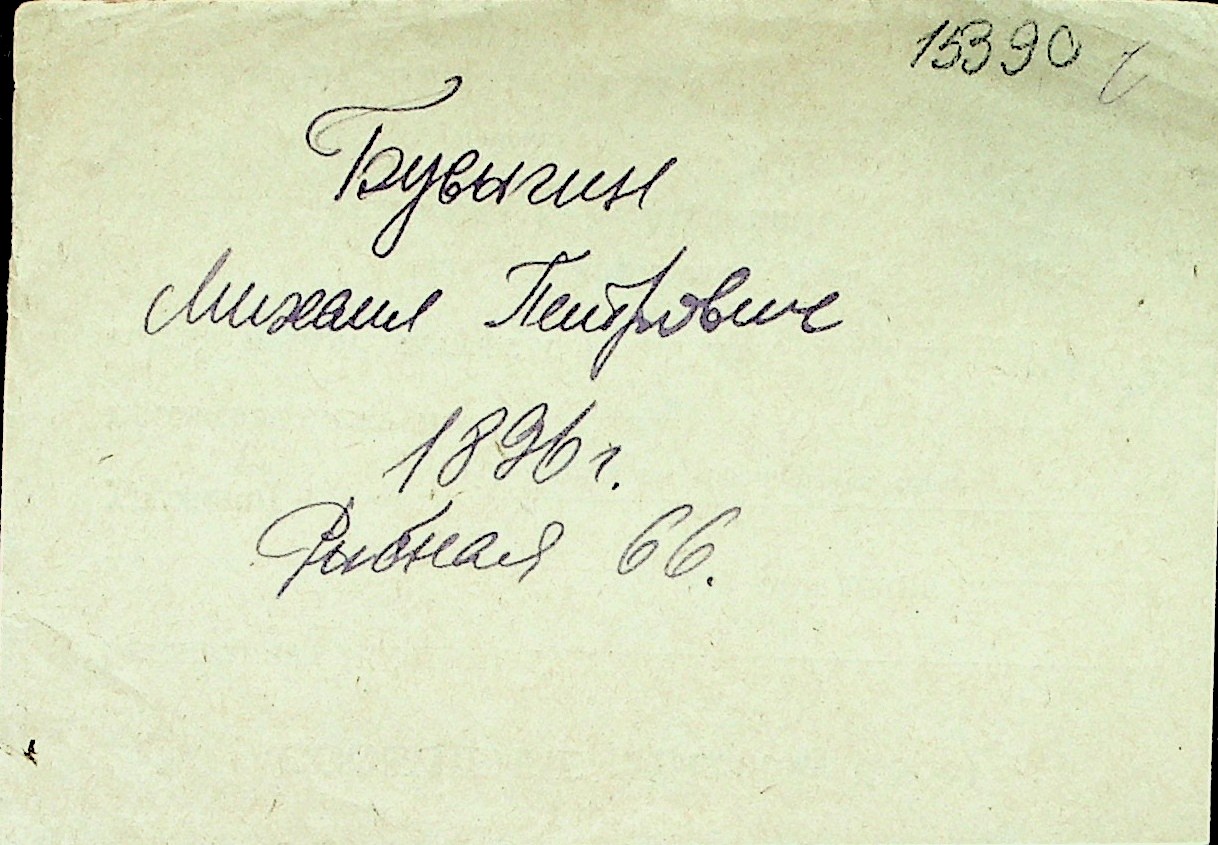 15390
Бувыгин
Михаил Петрович
1896 г.
Рыбная 66.